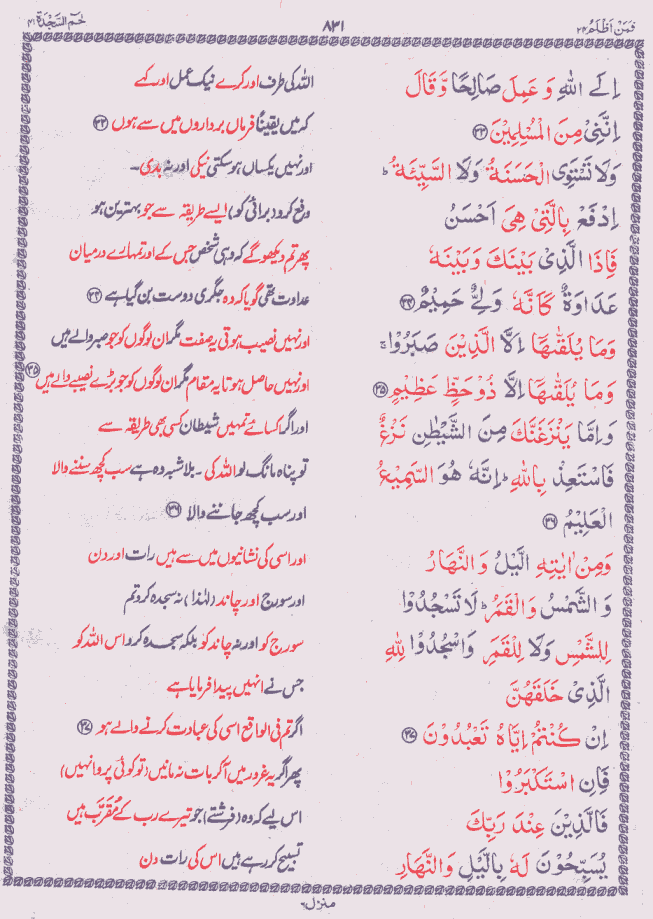 فَمَنْ اَظْلَمُ ۲۴
۸۳۱
حٰمٓ السَّجْدَة ۴۱
اِلَى اللّٰهِ وَ عَمِلَ صَالِحًا وَّ قَالَ
اِنَّنِىْ مِنَ الْمُسْلِمِيْنَ ۳۳
وَلَا تَسْتَوِى الْحَسَنَةُ وَلَا السَّيِّئَةُ ؕ
اِدْفَعْ بِالَّتِىْ هِىَ اَحْسَنُ
فَاِذَا الَّذِىْ بَيْنَكَ وَبَيْنَهٗ
عَدَاوَةٌ كَاَنَّهٗ وَلِىٌّ حَمِيْمٌ ۳۴
وَمَا يُلَقّٰىهَاۤ اِلَّا الَّذِيْنَ صَبَرُوْا ۚ
وَمَا يُلَقّٰىهَاۤ اِلَّا ذُوْ حَظٍّ عَظِيْمٍ ۳۵
وَاِمَّا يَنْزَغَنَّكَ مِنَ الشَّيْطٰنِ نَزْغٌ
فَاسْتَعِذْ بِاللّٰهِ ؕ اِنَّهٗ هُوَ السَّمِيْعُ
الْعَلِيْمُ ۳۶
وَمِنْ اٰيٰتِهِ الَّيْلُ وَ النَّهَارُ
وَ الشَّمْسُ وَالْقَمَرُ ؕ لَا تَسْجُدُوْا
لِلشَّمْسِ وَلَا لِلْقَمَرِ وَاسْجُدُوْا لِلّٰهِ
الَّذِىْ خَلَقَهُنَّ
اِنْ كُنْتُمْ اِيَّاهُ تَعْبُدُوْنَ ۳۷
فَاِنِ اسْتَكْبَرُوْا
فَالَّذِيْنَ عِنْدَ رَبِّكَ
يُسَبِّحُوْنَ لَهٗ بِالَّيْلِ وَالنَّهَارِ
اللہ کی طرف اور کرے نیک عمل اور کہے
کہ میں یقیناً فرماں برداروں میں سے ہوں ۳۳
اور نہیں یکساں ہو سکتی نیکی اور نہ بدی۔
دفع کرو (برائی کو) ایسے طریقہ سے جو بہترین ہو
پھر تم دیکھو گے کہ وہی شخص جس کے اور تمہارے درمیان
عداوت تھی گویا کہ وہ جگری دوست بن گیا ہے ۳۴
اور نہیں نصیب ہوتی یہ صفت مگر ان لوگوں کو جو صبر والے ہیں
اور نہیں حاصل ہوتا یہ مقام مگر ان لوگوں کو جو بڑے نصیبے والے ہیں ۳۵
اور اگر اکسائے تمہیں شیطان کسی بھی طریقہ سے
تو پناہ مانگ لو اللہ کی۔ بلاشبہ وہ ہے سب کچھ سننے والا
اور سب کچھ جاننے والا ۳۶
اور اسی کی نشانیوں میں سے ہیں رات اور دن
اور سورج اور چاند (لہٰذا) نہ سجدہ کرو تم
سورج کو اور نہ چاند کو بلکہ سجدہ کرو اس اللہ کو
جس نے انہیں پیدا فرمایا ہے
اگر تم فی الواقع اسی کی عبادت کرنے والے ہو ۳۷
پھر اگر یہ غرور میں آ کر بات نہ مانیں (تو کوئی پروا نہیں)
اس لیے کہ وہ (فرشتے) جو تیرے رب کے مُقَرَّب ہیں
تسبیح کر رہے ہیں اس کی رات دن
منزل ۶